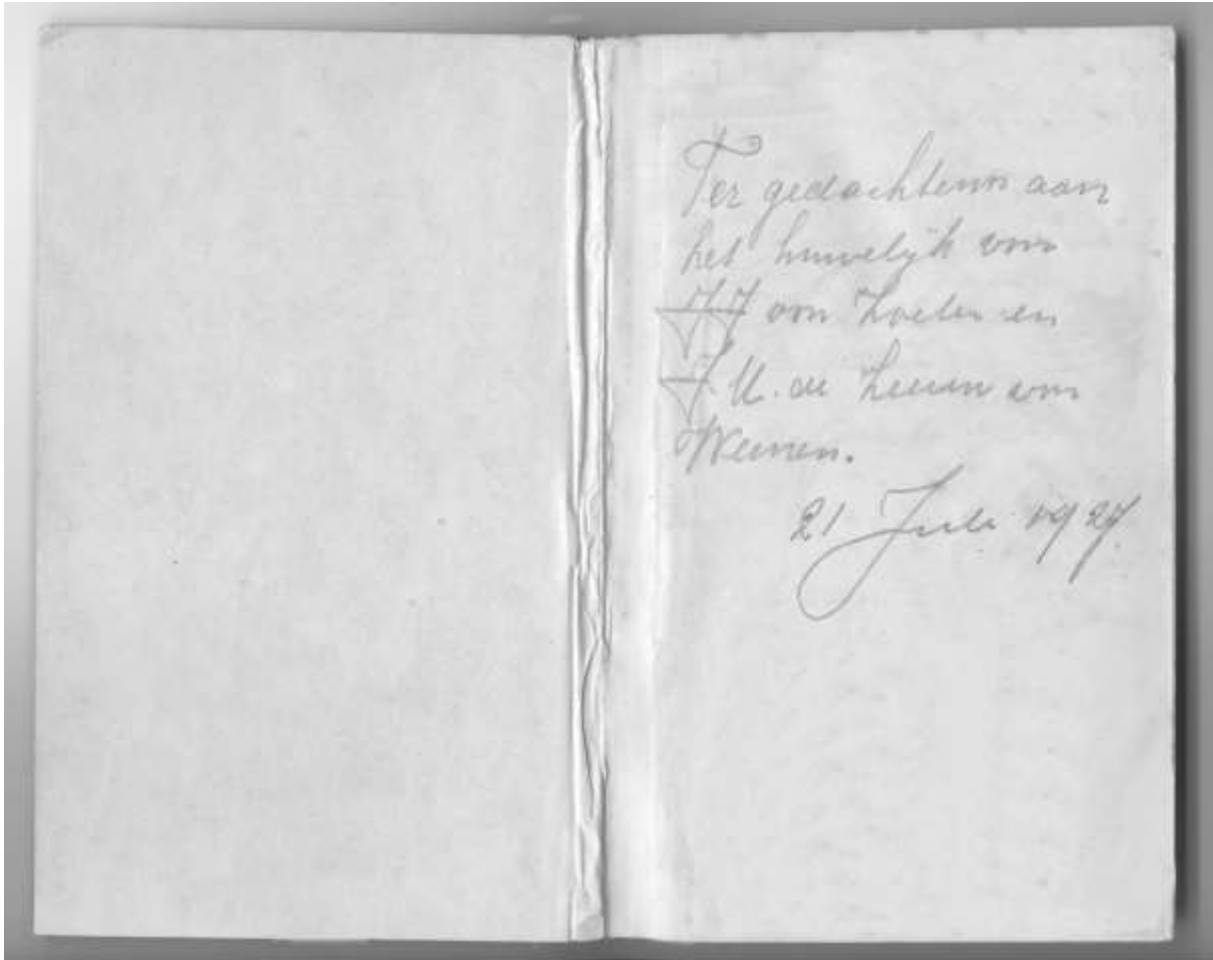 Ter gedachtenis aan
het huwelijk van
J J van Zoelen en
J M. de Leeuw van
Weenen.
21 Juli 1927.